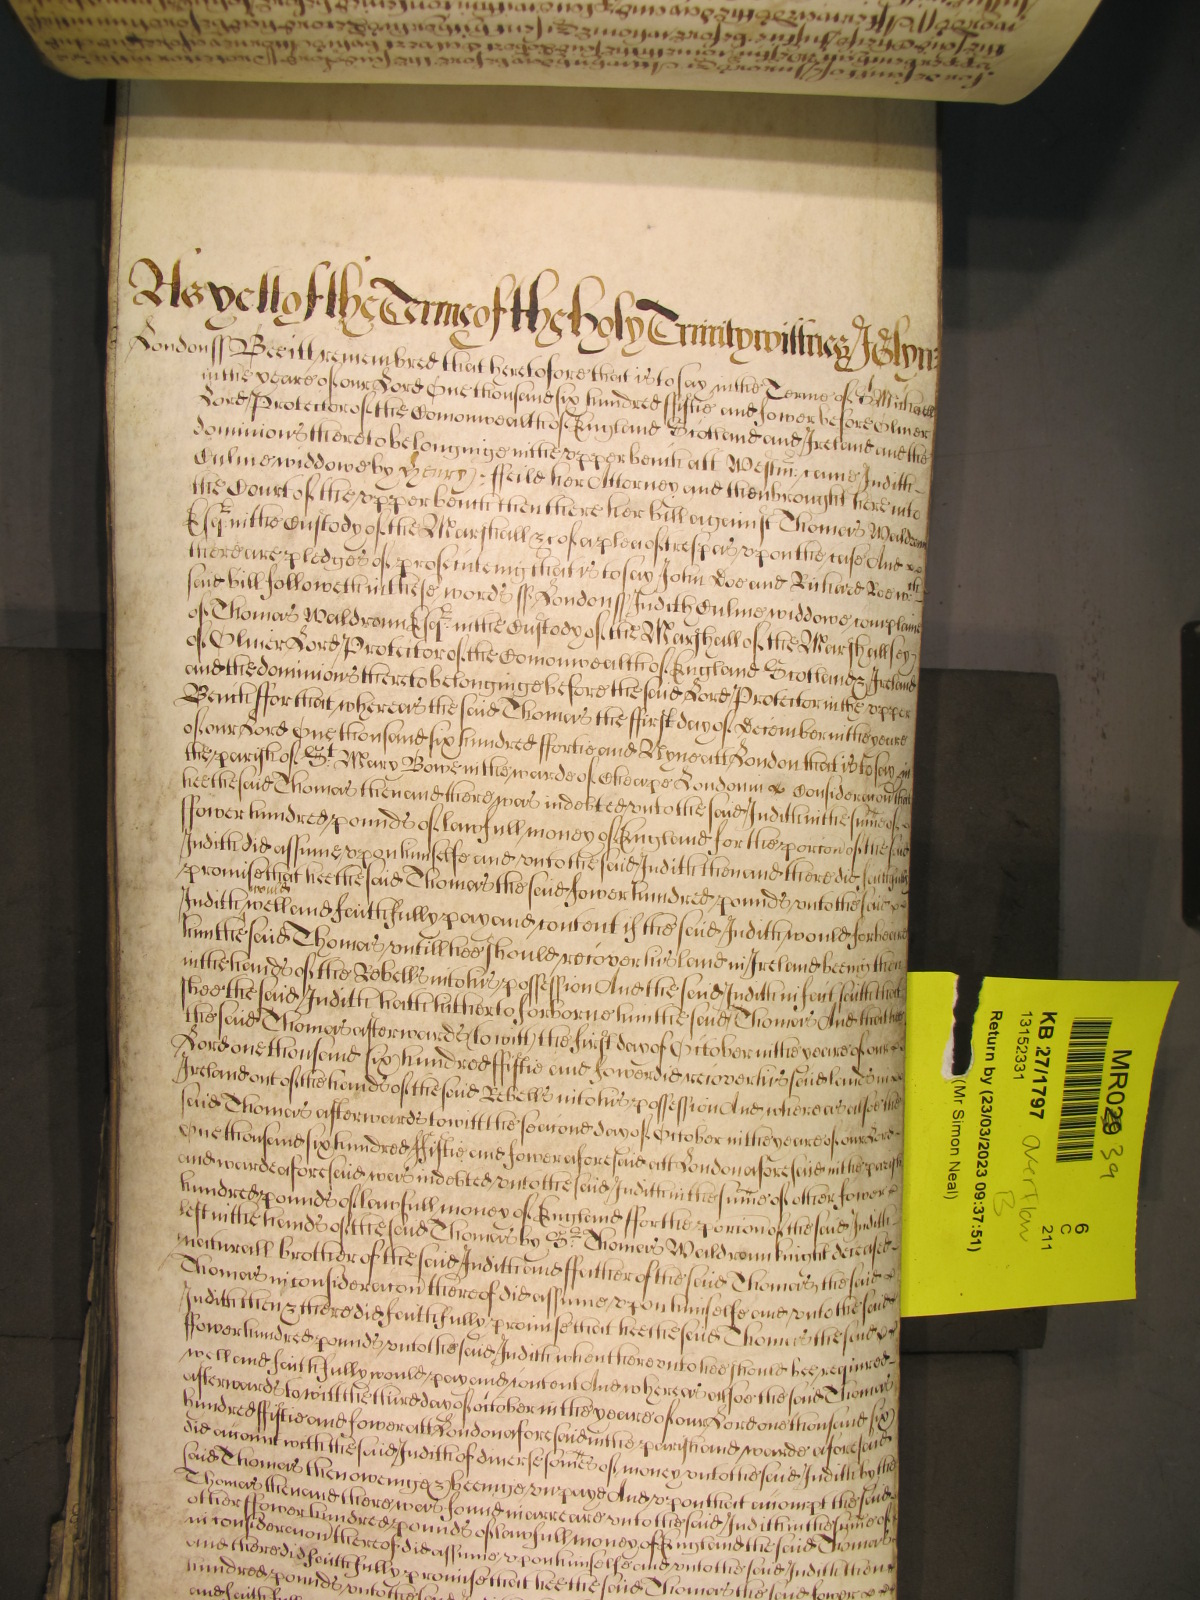 As yett of the Terme of the holy Trinity wittnes J Glyn
London ss Bee itt remembred that heretofore that is to say in the Terme of St Michaell
in the yeare of our Lord One thousand six hundred fiftie and fower before Oliver
Lord Protector of the Comonwealth of England Scotland and Ireland and the
dominions thereto belonginge in the vpper bench att Westmr came Judith
Culme widdowe by Henry ffeild her Attorney and then brought here into
the Court of the vpper bench then there her bill against Thomas Waldronn
Esqr in the Custody of the Marshall &c of a plea of trespas vpon the case And
there are pledges of prosecuteing that is to say John Doe and Richard Roe wch
said bill followeth in these words ss London ss Judith Culme widdowe complaines
of Thomas Waldronn Esqr in the Custody of the Marshall of the Marshallsey
of Oliver Lord Protector of the Comonwealth of England Scotland & Ireland
and the dominions thereto belonginge before the said Lord Protector in the vpper
Bench ffor that whereas the said Thomas the ffirst day of December in the yeare
of our Lord One thousand six hundred ffortie and Nyne att London that is to say in
the parish of St Mary Bowe in the warde of Cheape London in Consideracon that
hee the said Thomas then and there was indebted vnto the said Judith in the sume of
ffower hundred pounds of lawfull money of England for the porcon of the said
Judith did assume vpon himselfe and vnto the said Judith then and there did faithfully
promise that hee the said Thomas the said fower hundred pounds vnto the said
Judith would well and faithfully pay and content if the said Judith would forbeare
him the said Thomas vntill hee should recover his land in Ireland beeing then
in the hands of the Rebells into his possession And the said Judith in fact saith that
shee the said Judith hath hitherto forborne him the said Thomas And that hee
the said Thomas afterwards to witt the first day of October in the yeare of our
Lord one thousand six hundred ffiftie and fower did recover his said lands in
Ireland out of the hands of the said Rebells into his possession And whereas alsoe the
said Thomas afterwards to witt the second day of October in the yeare of our Lord
One thousand six hundred ffiftie and fower aforesaid att London aforesaid in the parish
and warde aforesaid was indebted vnto the said Judith in the sume of other fower
hundred pounds of lawfull money of England ffor the porcon of the said Judith
left in the hands of the said Thomas by Sr Thomas Waldronn knight deceased
naturall brother of the said Judith and ffather of the said Thomas the said
Thomas in consideracon thereof did assume vpon himselfe and vnto the said
Judith then & there did faithfully promise that hee the said Thomas the said
ffower hundred pounds vnto the said Judith when therevnto hee should bee required
well and faithfully would pay and content And whereas alsoe the said Thomas
afterwards to witt the third day of October in the yeare of our Lord one thousand six
hundred ffiftie and fower att London aforesaid in the parish and warde aforesaid
did accompt with the said Judith of diverse somes of money vnto the said Judith by the
said Thomas then oweinge & beeinge vnpayd And vpon that accompt the said
Thomas then and there was found in arreare vnto the said Judith in the sume of
other ffower hundred pounds of lawfull money of England the said Thomas
in consideracon thereof did assume vpon himselfe and vnto the said Judith then
and there did faithfully promise that hee the said Thomas the said fower
hundred pounds vnto the said
and faithfully
MR029 39
6
C
211
KB 27/1797
13152331
Overflow
B
Return by (23/03/2023 09:37:51)
(Mr Simon Neal)